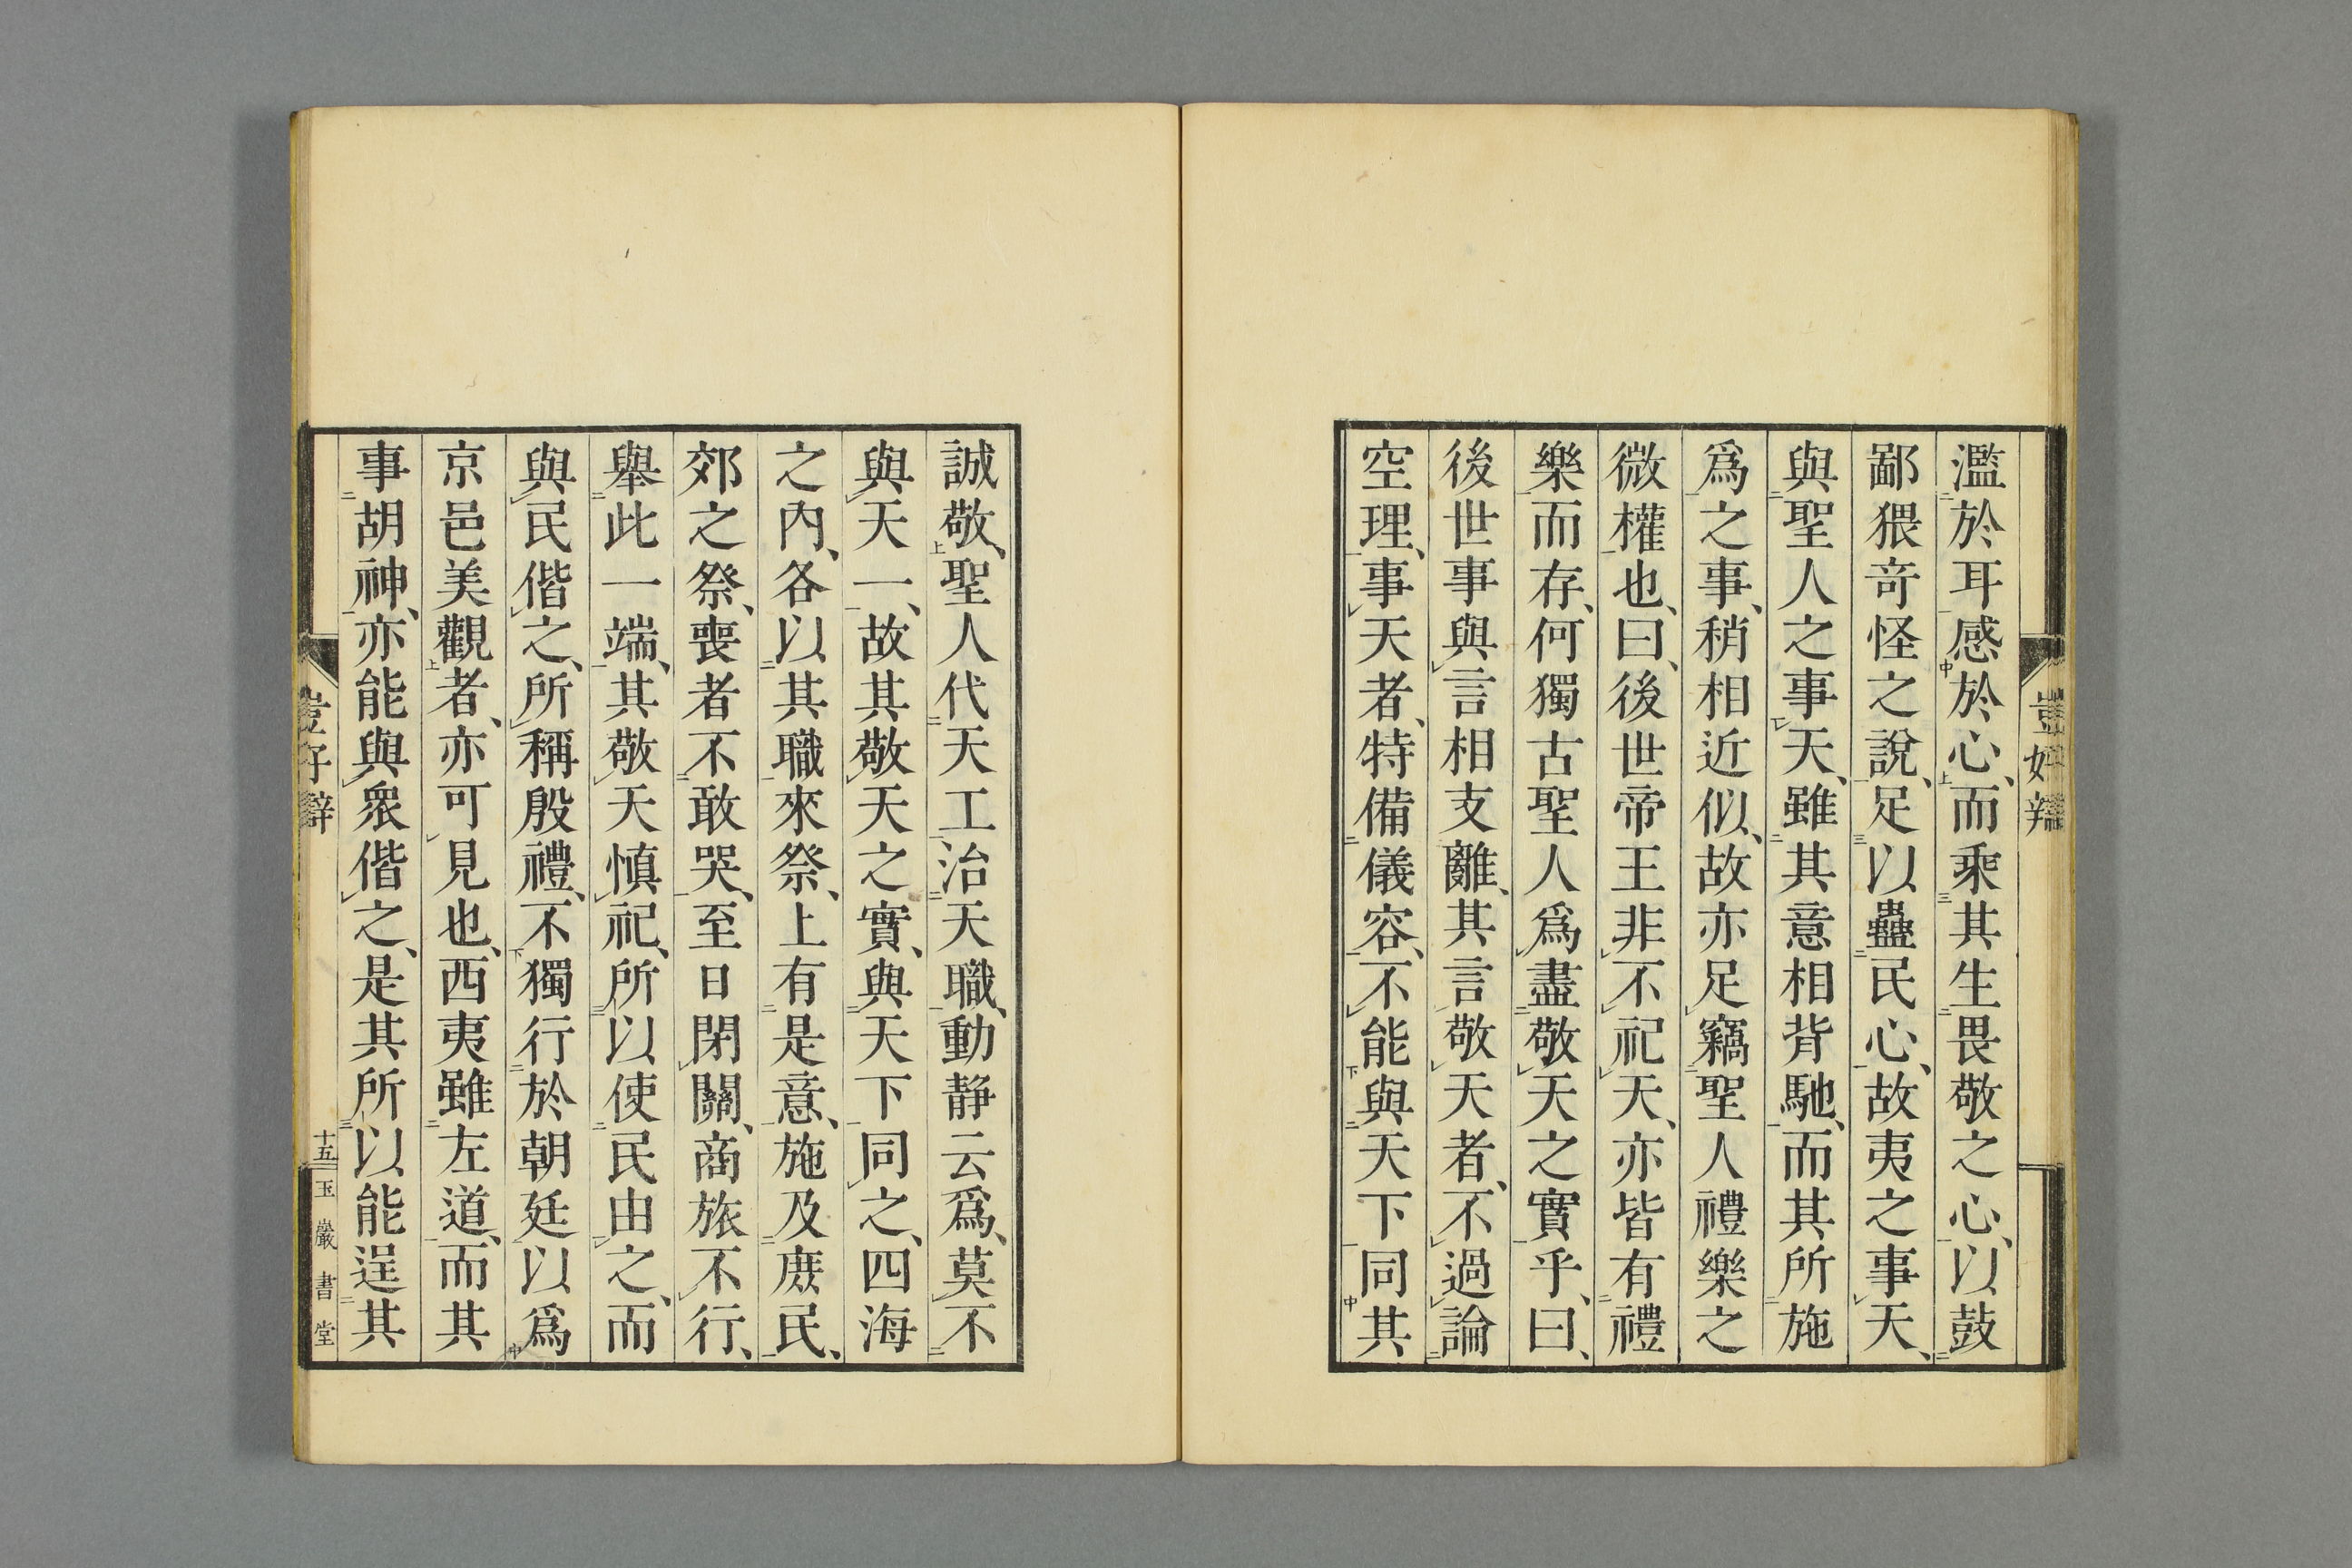 豈好辯
濫於耳感於心、而乘其生畏敬之心、以鼓
鄙猥奇怪之說、足以蠱民心、故夷之事天、
與聖人之事天、雖其意相背馳、而其所施
爲之事、稍相近似、故亦足竊聖人禮樂之
微權也、曰、後世帝王非不祀天、亦皆有禮
樂而存、何獨古聖人爲盡敬天之實乎、曰、
後世事與言相支離、其言敬天者、不過論
空理、事天者、特備儀容、不能與天下同其
誠敬、聖人代天工治天職、動静云爲、莫不
與天一、故其敬天之實、與天下同之、四海
之內、各以其職來祭、上有是意、施及庶民、
郊之祭、喪者不敢哭、至日閉關、商旅不行、
舉此一端、其敬天愼祀、所以使民由之、而
與民偕之、所稱殷禮、不獨行於朝廷以爲
京邑美觀者、亦可見也、西夷雖左道、而其
事胡神、亦能與衆偕之、是其所以能逞其
豈好辯
十五
玉巖書堂